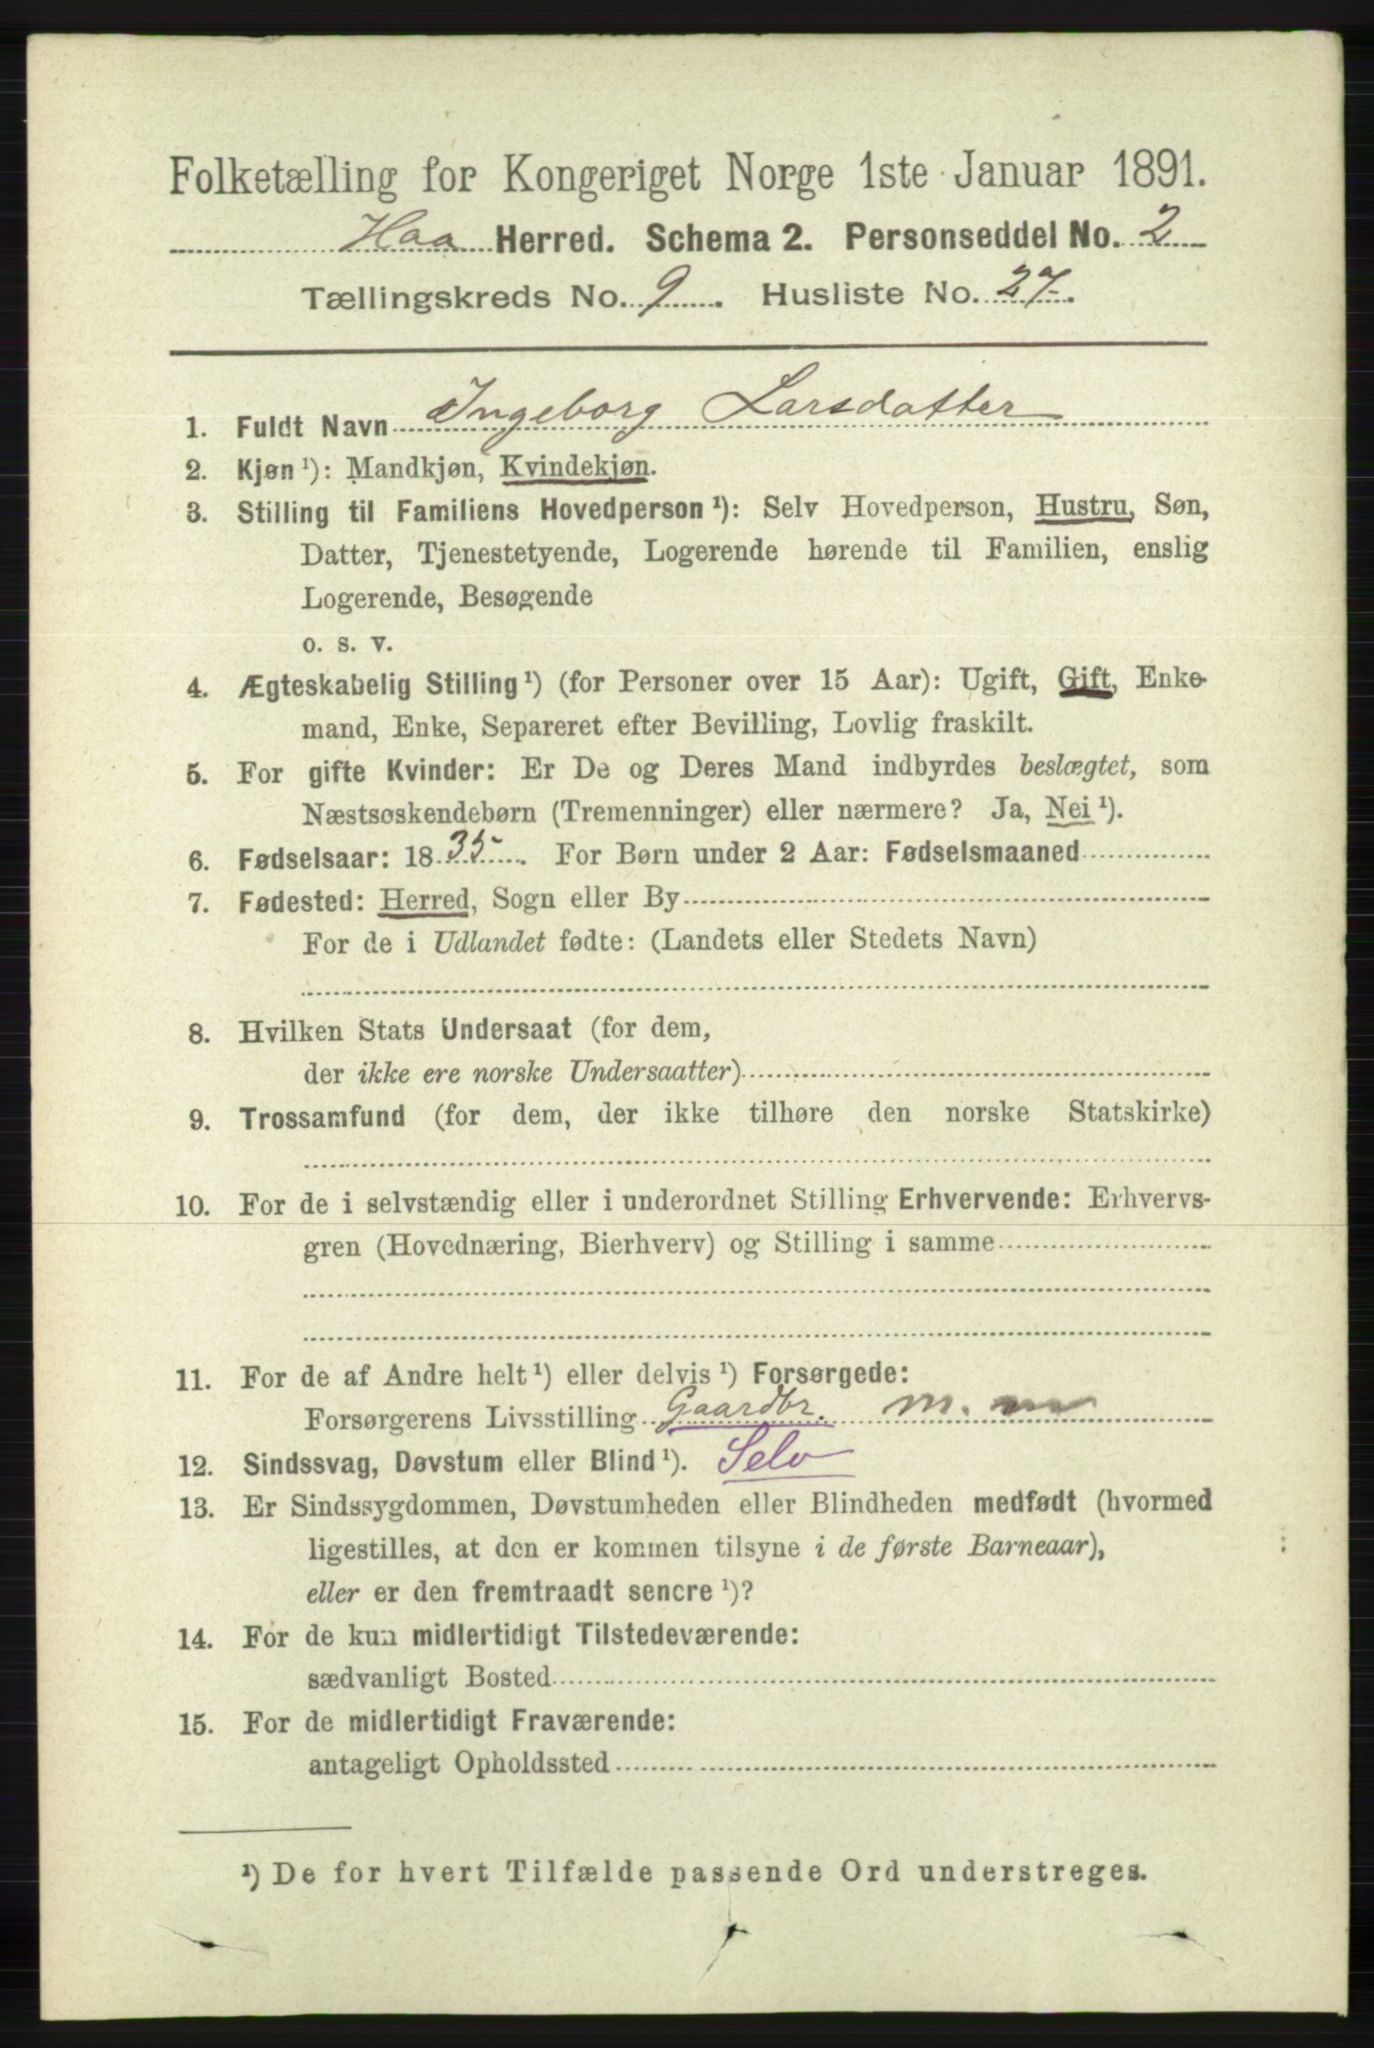 Folketælling for Kongeriget Norge 1ste Januar 1891.
Haa Herred. Schema 2. Personseddel No. 2
Tællingskreds No. 9. Husliste No. 27.
1. Fuldt Navn Ingeborg Larsdatter
2. Kjøn ¹): Mandkjøn, Kvindekjøn.
3. Stilling til Familiens Hovedperson ¹): Selv Hovedperson, Hustru, Søn,
Datter, Tjenestetyende, Logerende hørende til Familien, enslig
Logerende, Besøgende
o. s. v.
4. Ægteskabelig Stilling ¹) (for Personer over 15 Aar): Ugift, Gift, Enke-
mand, Enke, Separeret efter Bevilling, Lovlig fraskilt.
5. For gifte Kvinder: Er De og Deres Mand indbyrdes beslægtet, som
Næstsøskendebørn (Tremenninger) eller nærmere? Ja, Nei ¹).
6. Fødselsaar: 1835. For Børn under 2 Aar: Fødselsmaaned
7. Fødested: Herred, Sogn eller By
For de i Udlandet fødte: (Landets eller Stedets Navn)
8. Hvilken Stats Undersaat (for dem,
der ikke ere norske Undersaatter)
9. Trossamfund (for dem, der ikke tilhøre den norske Statskirke)
10. For de i selvstændig eller i underordnet Stilling Erhvervende: Erhvervs-
gren (Hovednæring, Bierhverv) og Stilling i samme
11. For de af Andre helt ¹) eller delvis ¹) Forsørgede:
Forsørgerens Livsstilling Gaardbr. m. m
12. Sindssvag, Døvstum eller Blind ¹). Selv
13. Er Sindssygdommen, Døvstumheden eller Blindheden medfødt (hvormed
ligestilles, at den er kommen tilsyne i de første Barneaar),
eller er den fremtraadt senere ¹)?
14. For de kun midlertidigt Tilstedeværende:
sædvanligt Bosted
15. For de midlertidigt Fraværende:
antageligt Opholdssted
¹) De for hvert Tilfælde passende Ord understreges.